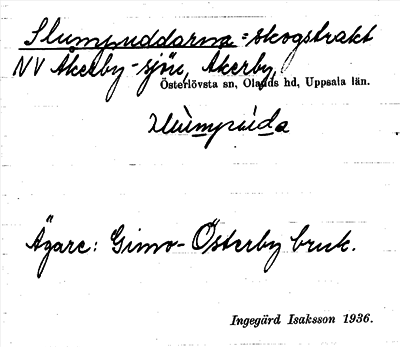 Slumpuddarna = skogstrakt
NV Åkerby-sjön, Åkerby,
Österlövsta sn, Olands hd, Uppsala län.
Ägare: Gimo-Österby bruk.
Ingegärd Isaksson 1936.